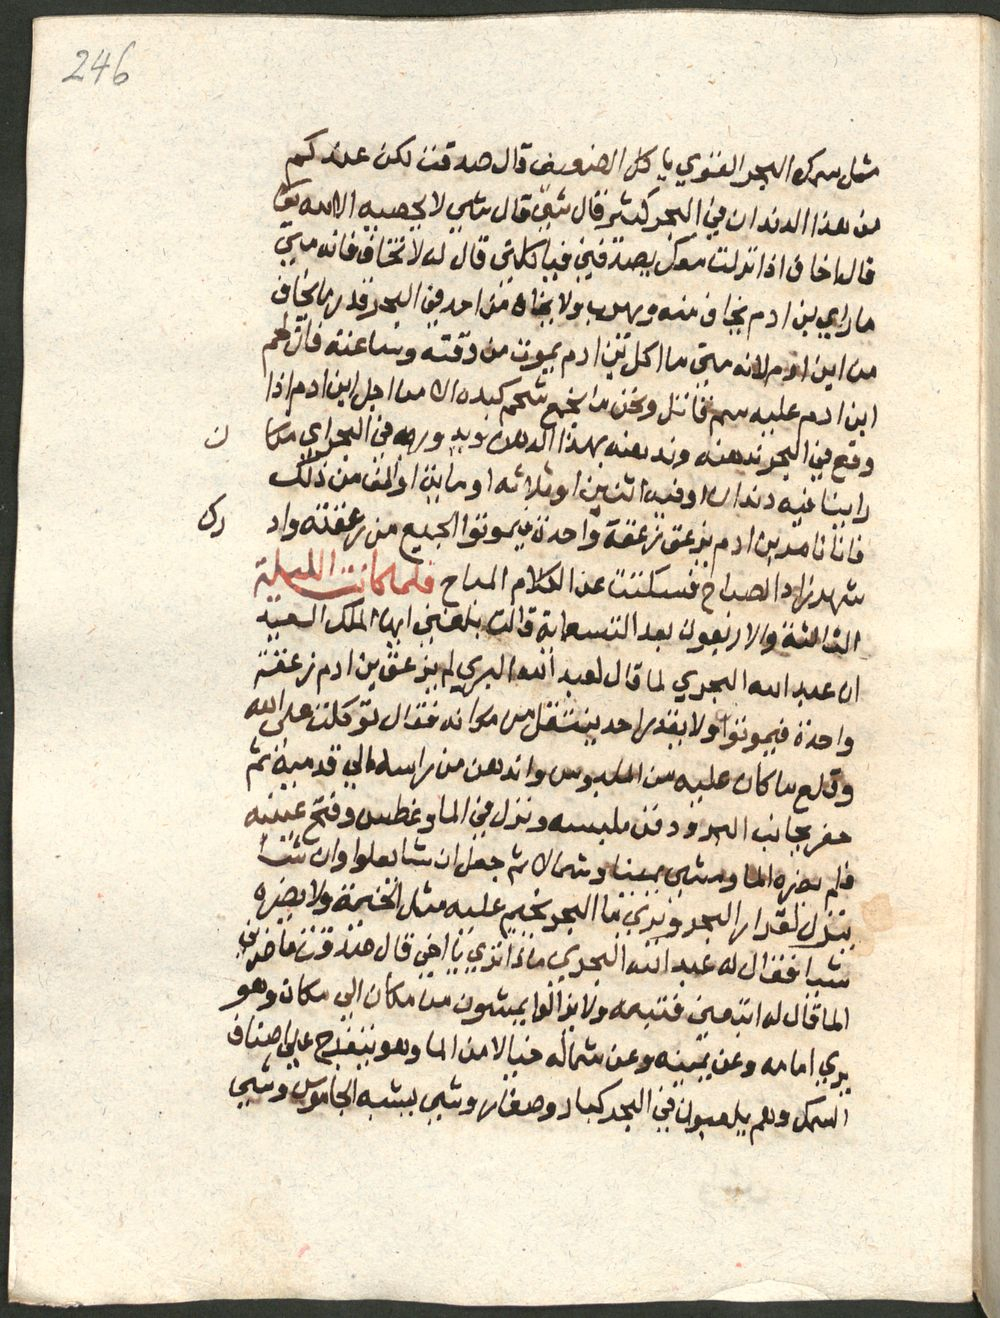 246
مثل سمك البحر القوي ياكل الضعيف قال صدقت لكن عندكم
من هذا الدندان في البحر كثير قال شي قال شي لا يحصيه الا الله تعا
قال اخاف اذا نزلت معك يصدفني فياكلني قال له لا تخاف فانه متي
ما راي بن ادم يخاف منه ويهرب ولا يخاف من احد في البحر قد ما يخاف
من ابن ادم لانه متي ما اكل بن ادم يموت من وقته وساعته فان لحم
ابن ادم عليه سم قاتل ونحن ما نجمع شحم كبده الا من اجل ابن ادم اذا
وقع في البحر ندهنه وندهنه بهذا الدهن وندوره في البحر اي مكا
ن
راينا فيه دندان او فيه اثنين او ثلاثه او مايتين او الف من ذلك
فاننا نامر بن ادم يزعق زعقة واحدة فيموتوا الجميع من زعقته واد
رك
شهرزاد الصباح فسكتت عن الكلام المباح فلما كانت الليلة
الثالثة والاربعون بعد التسعماية قالت بلغني ايها الملك السعيد
ان عبد الله البحري لما قال لعبد الله البري لم يزعق بن ادم زعقة
واحدة فيموتوا ولا يقدر احد ينتقل من مكانه فقال توكلت على الله
وقلع ما كان عليه من الملبوس واندهن من راسه الي قدميه ثم
حفر بجانب البحر ودفن ملبسه ونزل في الما وغطس وفتح عينيه
فلم يضره الما ومشي يمينا وشمالا ثم جعل ان شا يعلوا وان شا
ينزل لقرار البحر ويري ما البحر مخيم عليه مثل الخيمة ولا يضره
شيا فقال له عبد الله البحري ماذا تري يا اخي قال صدقت ما ضرني
الما قال له اتبعني فتبعه ولا زالوا يمشون من مكان الي مكان وهو
يري امامه وعن يمينه وعن شماله جبالا من الما وهو يتفرج علي اصناف
السمك وهم يلعبون في البحر كبار وصغار وشي يشبه الجاموس وشي